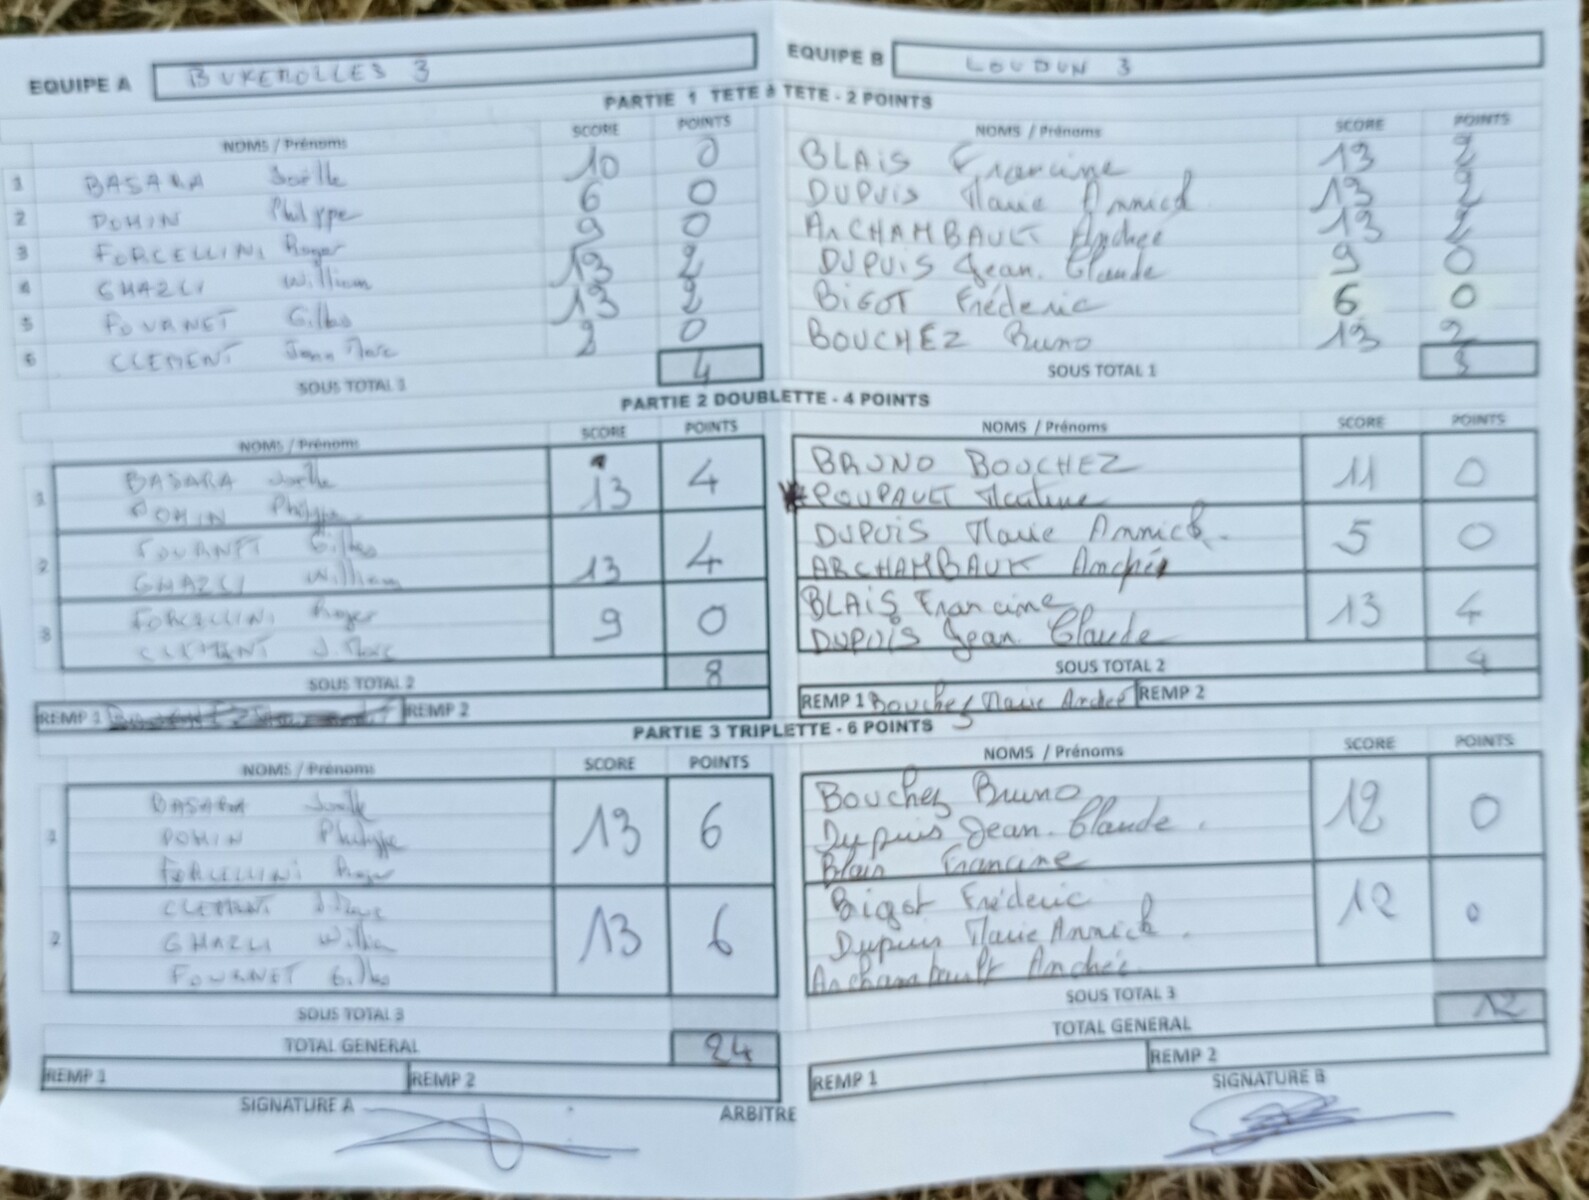 EQUIPE A BUXEROLLES 3
EQUIPE B LOUDUN 3
PARTIE 1 TETE à TETE - 2 POINTS
NOMS / Prénoms SCORE POINTS NOMS / Prénoms SCORE POINTS
1 BASARA Joëlle 10 0 BLAIS Francine 13 2
2 DOMIN Philippe 6 0 DUPUIS Marie Annick 13 2
3 FORCELLINI Roger 9 0 ARCHAMBAULT Andrée 13 2
4 GHAZLI William 13 2 DUPUIS Jean. Claude 9 0
5 FOURNET Gilbo 13 2 BIGOT Fréderic 6 0
6 CLEMENT Jean Marc 2 0 BOUCHEZ Bruno 13 2
SOUS TOTAL 1 4 SOUS TOTAL 1
PARTIE 2 DOUBLETTE - 4 POINTS
NOMS / Prénoms SCORE POINTS NOMS / Prénoms SCORE POINTS
1 BASARA Joëlle 13 4 BRUNO BOUCHEZ 11 0
DOMIN Philippe POUPAULT Martine
2 FOURNET Gilbo 13 4 DUPUIS Marie Annick. 5 0
GHAZLI William ARCHAMBAULT
3 FORCELLINI Roger 9 0 BLAIS Francine 13 4
CLEMENT J. Marc DUPUIS Jean Claude
SOUS TOTAL 2 8 SOUS TOTAL 2 4
REMP 1 REMP 2 REMP 1 Bouchez Marie Andrée REMP 2
PARTIE 3 TRIPLETTE - 6 POINTS
NOMS / Prénoms SCORE POINTS NOMS / Prénoms SCORE POINTS
1 BASARA Joelle 13 6 Bouchez Bruno 12 0
DOMIN Philippe Dupuis Jean. Claude.
FORCELLINI Roger Blais Francine
2 CLEMENT J Marc 13 6 Bigot Fréderic 12 0
GHAZLI William Dupuis Marie Annick.
FOURNET Gilbo Archambault Andrée.
SOUS TOTAL 3 SOUS TOTAL 3
TOTAL GENERAL 24 TOTAL GENERAL 12
REMP 1 REMP 2 REMP 1 REMP 2
SIGNATURE A ARBITRE SIGNATURE B